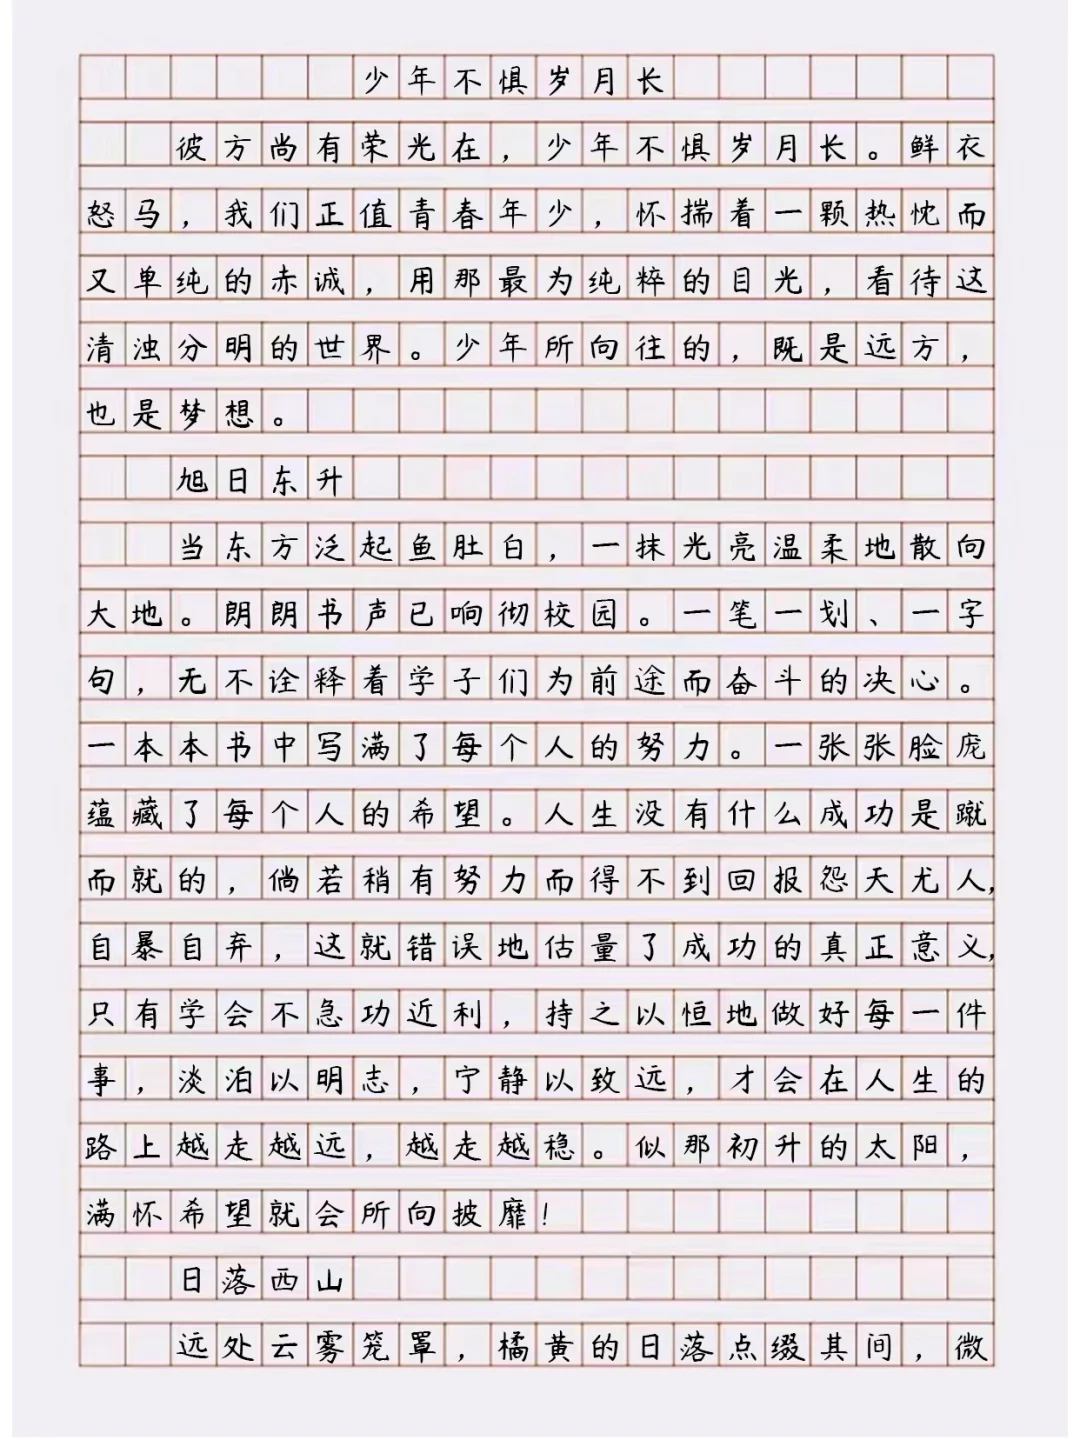 少年不惧岁月长
彼方尚有荣光在，少年不惧岁月长。鲜衣
怒马，我们正值青春年少，怀揣着一颗热忱而
又单纯的赤诚，用那最为纯粹的目光，看待这
清浊分明的世界。少年所向往的，既是远方，
也是梦想。
旭日东升
当东方泛起鱼肚白，一抹光亮温柔地散向
大地。朗朗书声已响彻校园。一笔一划、一字
句，无不诠释着学子们为前途而奋斗的决心。
一本本书中写满了每个人的努力。一张张脸庞
蕴藏了每个人的希望。人生没有什么成功是蹴
而就的，倘若稍有努力而得不到回报怨天尤人，
自暴自弃，这就错误地估量了成功的真正意义，
只有学会不急功近利，持之以恒地做好每一件
事，淡泊以明志，宁静以致远，才会在人生的
路上越走越远，越走越稳。似那初升的太阳，
满怀希望就会所向披靡！
日落西山
远处云雾笼罩，橘黄的日落点缀其间，微